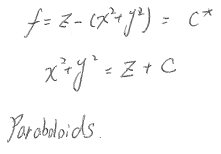 f = z - (x²+y²) = C*
x²+y² = z + C
Paraboloids.